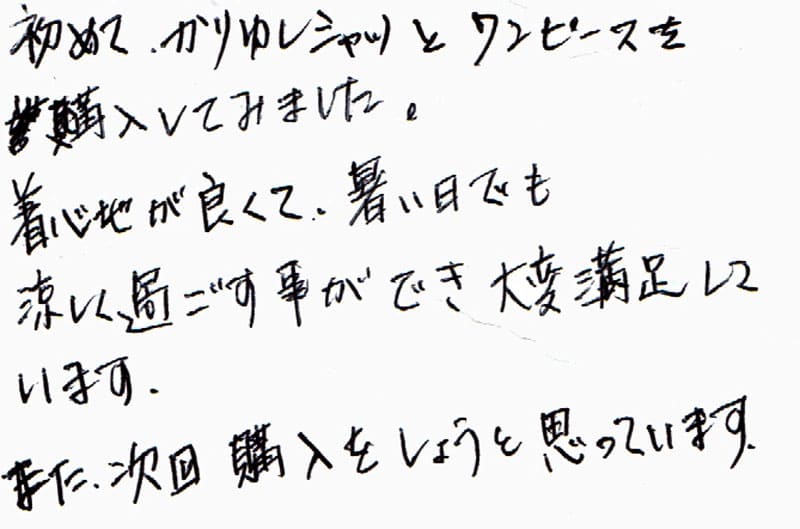 初めて、かりゆしシャツとワンピースを
購入してみました。
着心地が良くて、暑い日でも
涼しく過ごす事ができ大変満足して
います。
また、次回購入をしようと思っています。